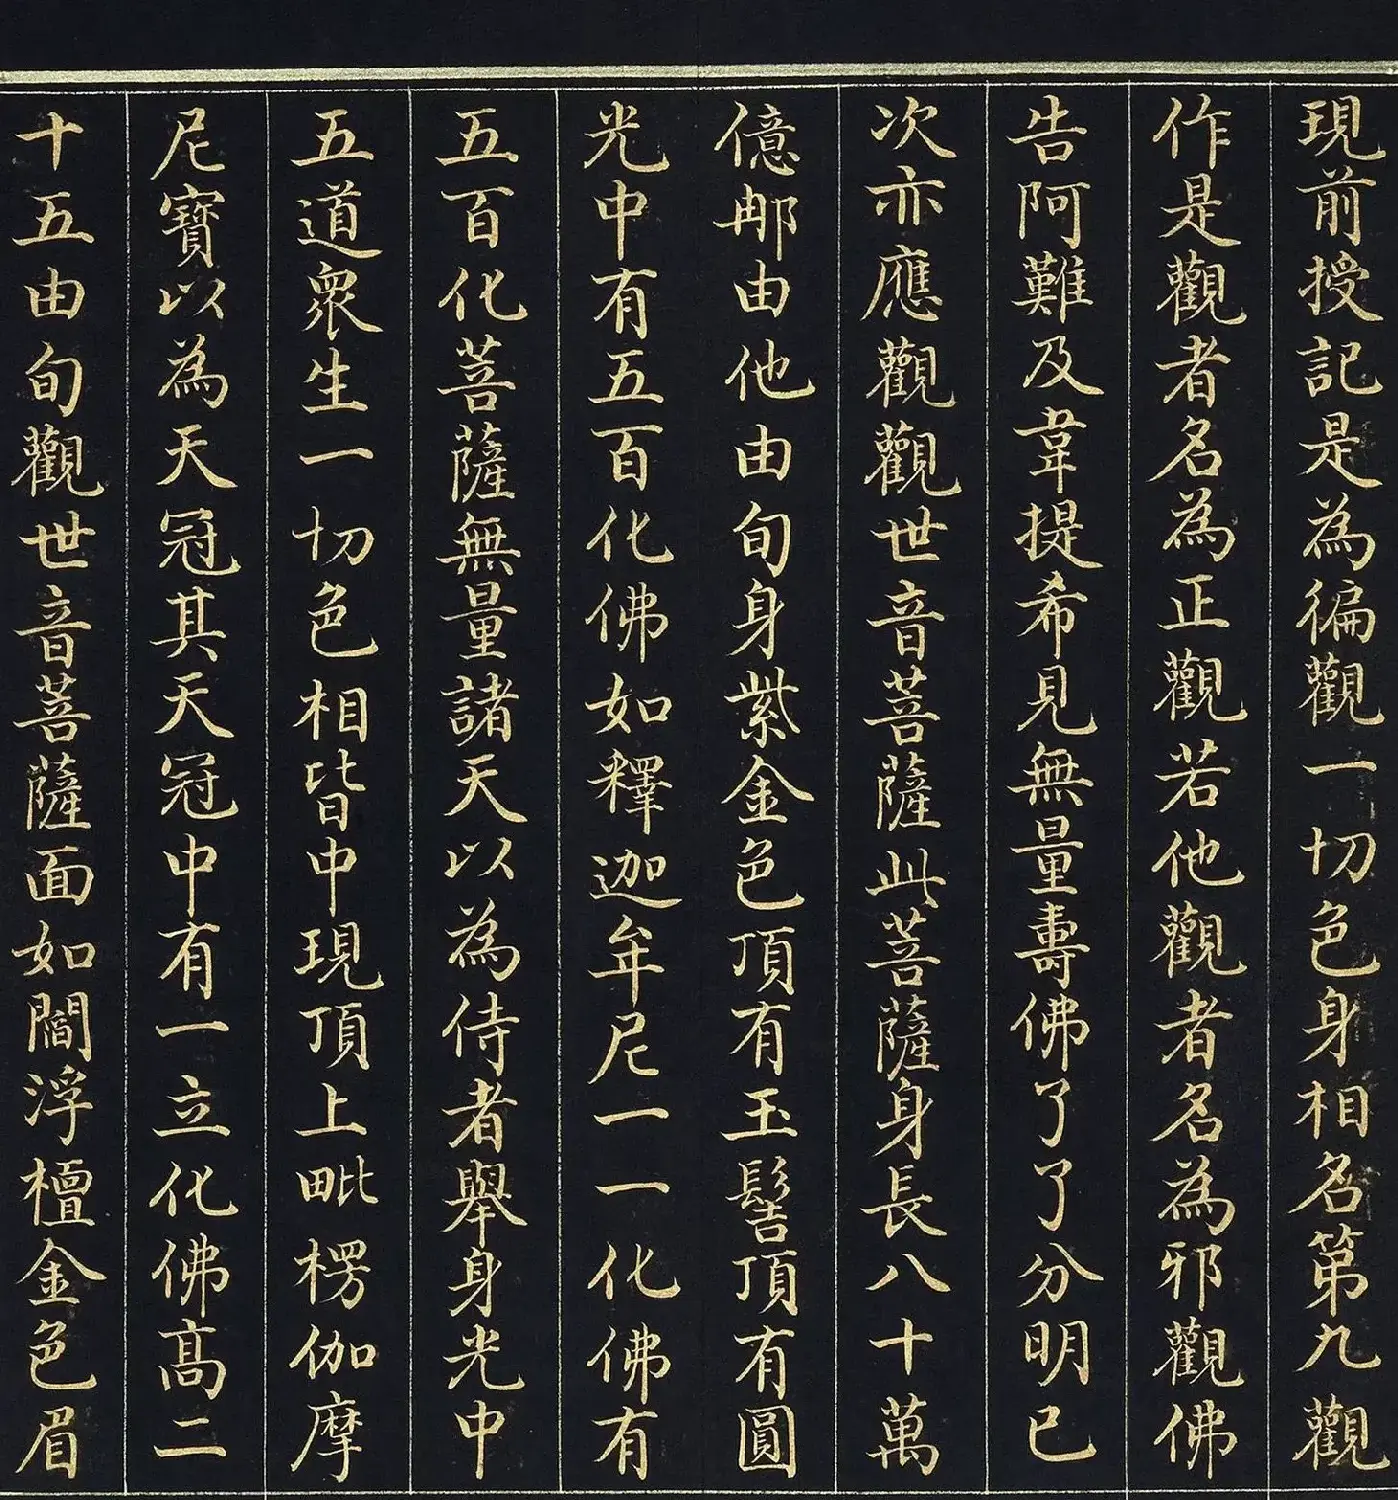 現前授記是為徧觀一切色身相名第九觀
作是觀者名為正觀若他觀者名為邪觀佛
告阿難及韋提希見無量壽佛了了分明已
次亦應觀觀世音菩薩此菩薩身長八十萬
億那由他由旬身紫金色頂有玉髻頂有圓
光中有五百化佛如釋迦牟尼一一化佛有
五百化菩薩無量諸天以為侍者舉身光中
五道眾生一切色相皆中現頂上毗楞伽摩
尼寶以為天冠其天冠中有一立化佛高二
十五由旬觀世音菩薩面如閻浮檀金色眉